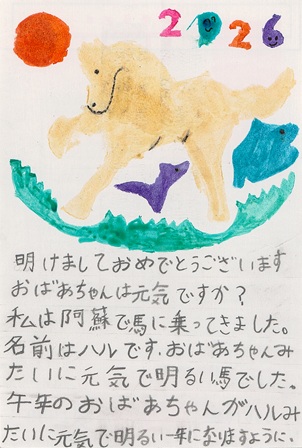 2026
明けましておめでとうございます
おばあちゃんは元気ですか?
私は阿蘇で馬に乗ってきました。
名前はハルです。おばあちゃんみ
たいに元気で明るい馬でした。
午年のおばあちゃんがハルみ
たいに元気で明るい一年になりますように。